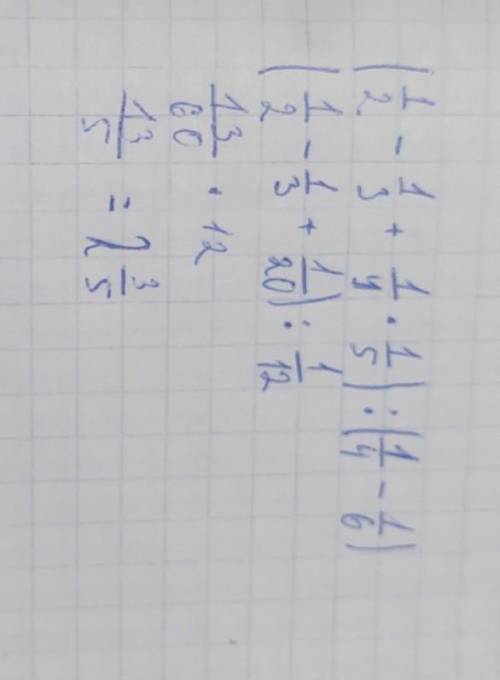 (1/2 - 1/3 + 1/4 · 1/5) : (1/4 - 1/6)
(1/2 - 1/3 + 1/20) : 1/12
13/60 · 12
13/5 = 2 3/5